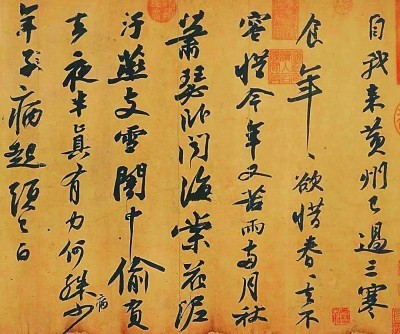 自我來黃州已過三寒
食年〻欲惜春〻去不
容惜今年又苦雨兩月秋
蕭瑟臥聞海棠花泥
汙燕支雪闇中偷負
去夜半真有力何殊少
病
年子病起須已白